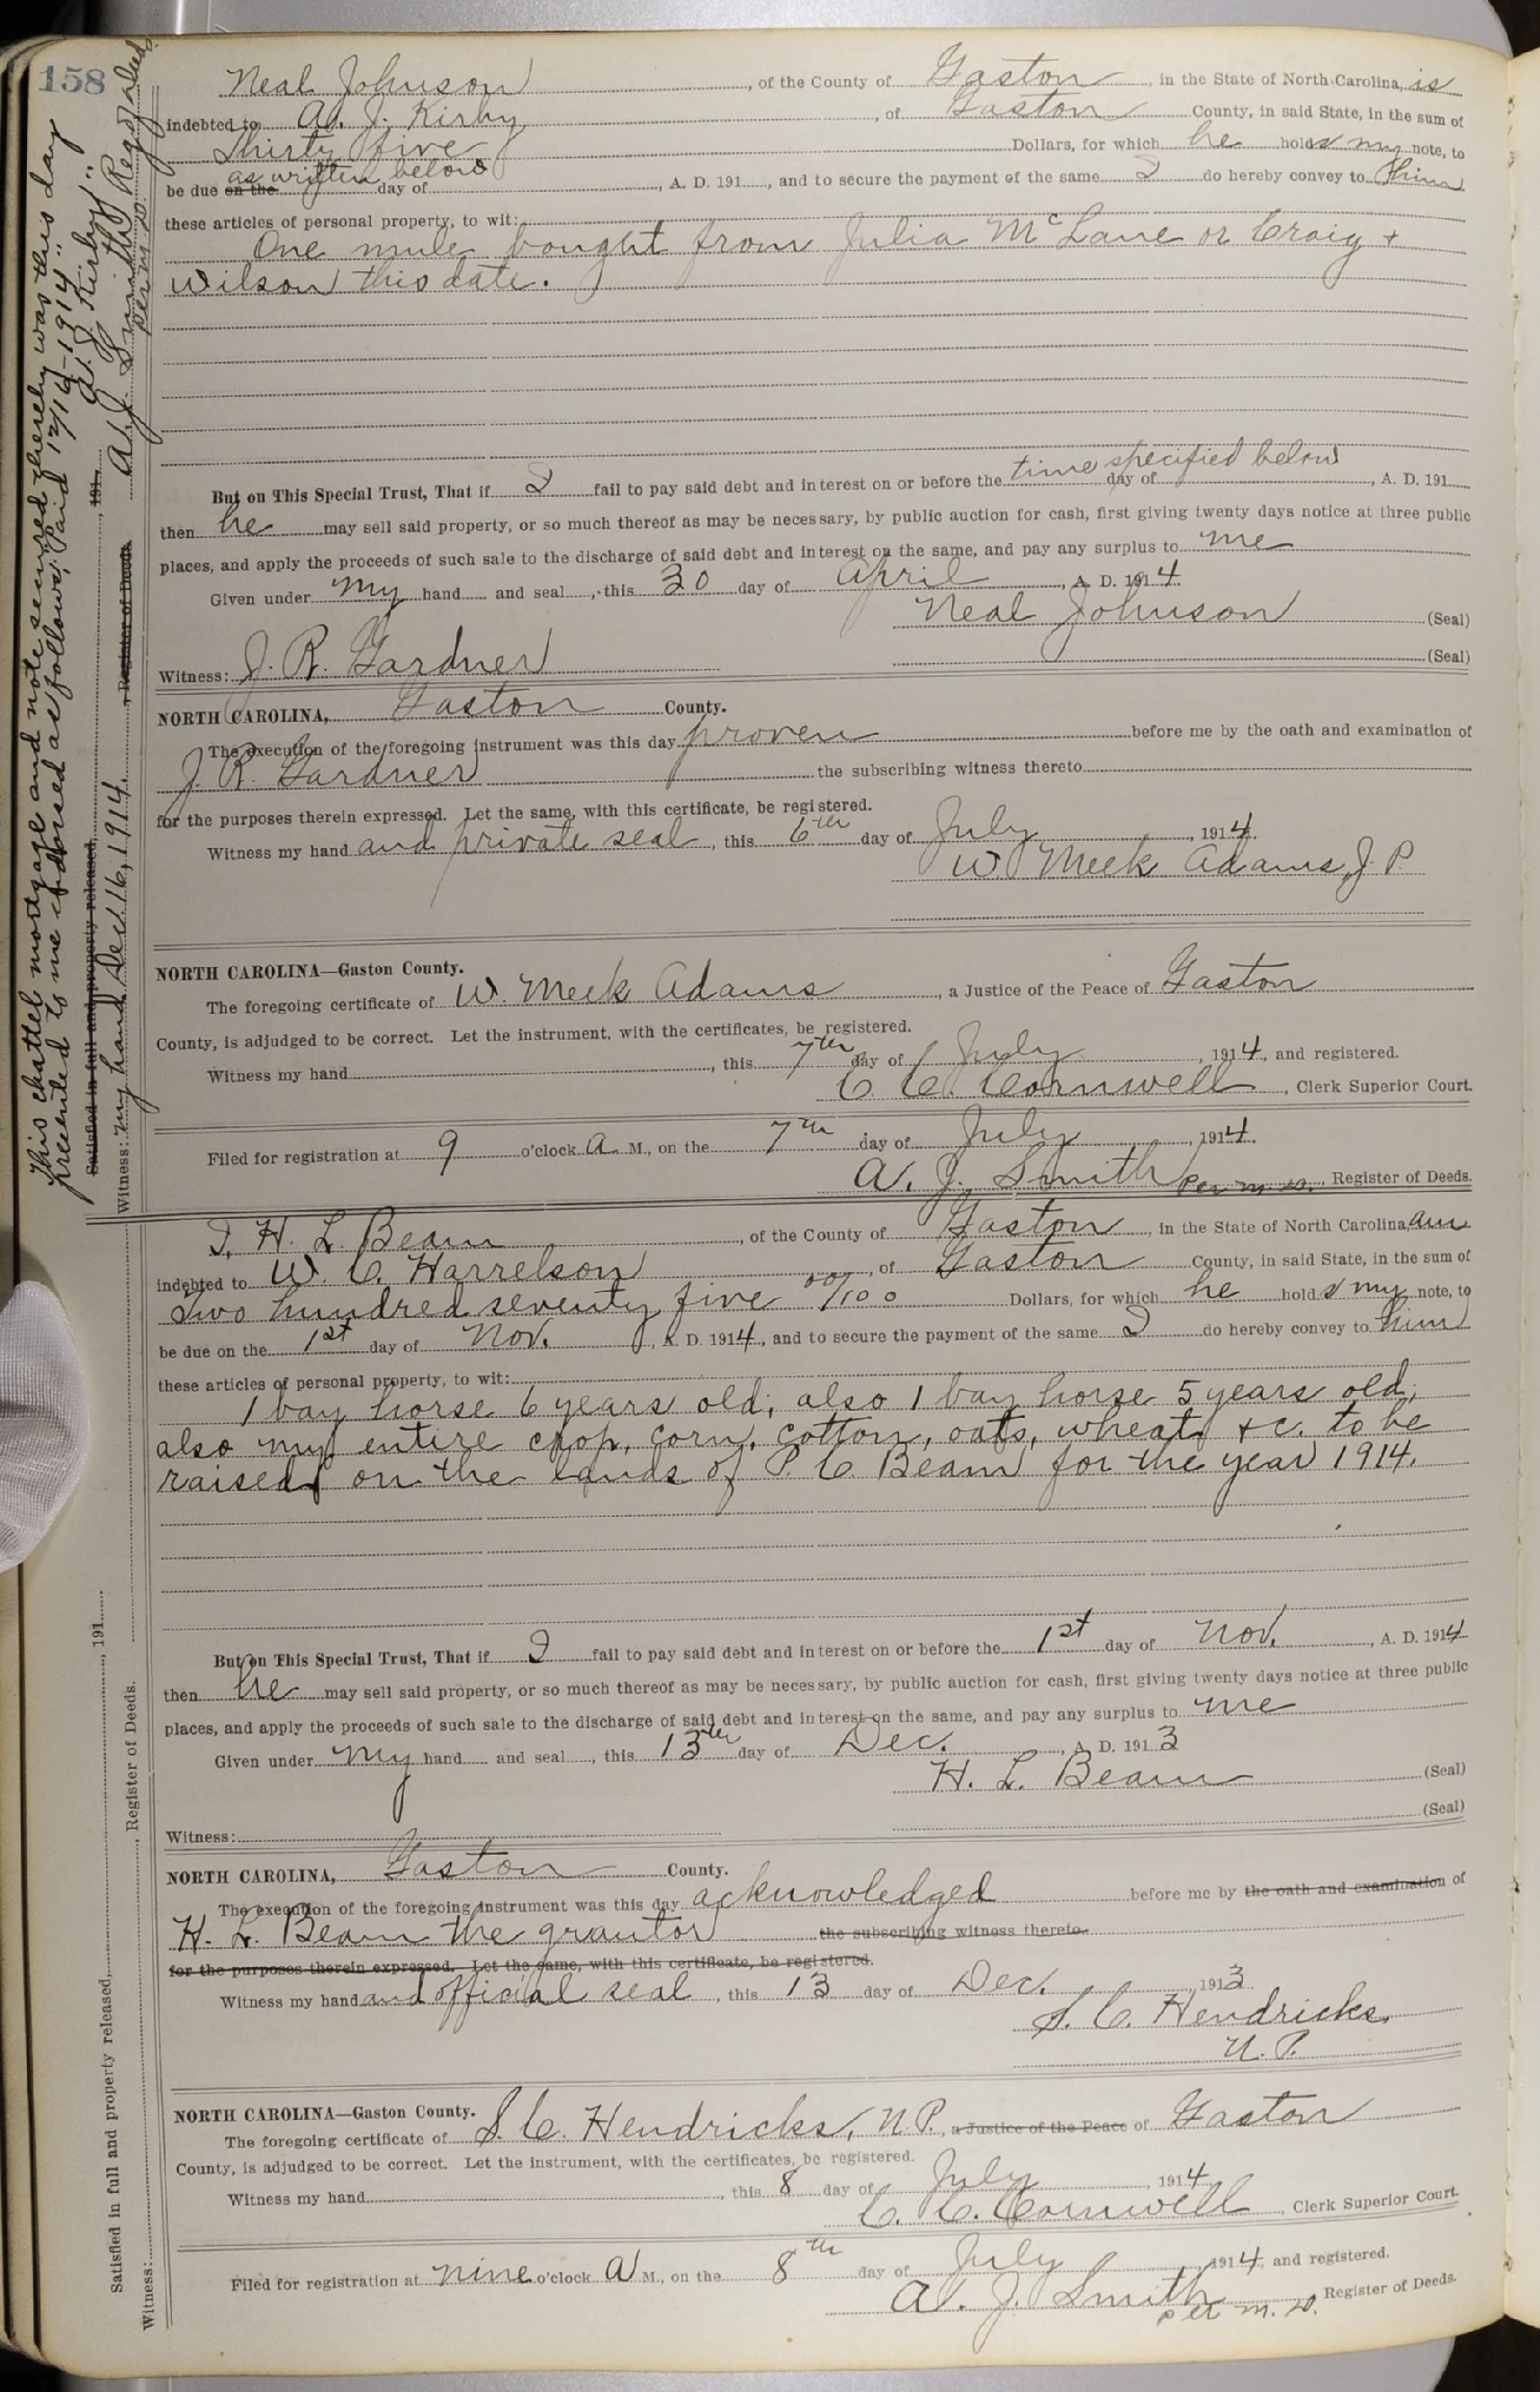 158
Neal Johnson, of the County of Gaston, in the State of North Carolina, is
indebted to A. J. Kirby, of Gaston County, in said State, in the sum of
Thirty five Dollars, for which he holds my note, to
as written below
be due on the day of , A. D. 191 , and to secure the payment of the same I do hereby convey to him
these articles of personal property, to wit:
One mule bought from Julia McLane or Craig +
Wilson this date.
But on This Special Trust, That if I fail to pay said debt and interest on or before the time specified below day of , A. D. 191
then he may sell said property, or so much thereof as may be necessary, by public auction for cash, first giving twenty days notice at three public
places, and apply the proceeds of such sale to the discharge of said debt and interest on the same, and pay any surplus to me
Given under my hand and seal , this 30 day of April , A. D. 1914.
Neal Johnson (Seal)
(Seal)
Witness: J. R. Gardner
NORTH CAROLINA, Gaston County.
The execution of the foregoing instrument was this day proven before me by the oath and examination of
J. R. Gardner the subscribing witness thereto
for the purposes therein expressed. Let the same, with this certificate, be registered.
Witness my hand and private seal, this 6th day of July, 1914.
W. Meek Adams, J. P.
NORTH CAROLINA—Gaston County.
The foregoing certificate of W. Meek Adams, a Justice of the Peace of Gaston
County, is adjudged to be correct. Let the instrument, with the certificates, be registered.
Witness my hand , this 7th day of July, 1914, and registered.
C. C. Cornwell, Clerk Superior Court.
Filed for registration at 9 o'clock A M., on the 7th day of July, 1914.
A. J. Smith per m. D. Register of Deeds.
This chattel mortgage and note secured thereby was this day
presented to me endorsed as follows; "Paid 12/14-1914"
A. J. Kirby"
Satisfied in full and property released, , 191
Witness: my hand Dec. 16, 1914. , Register of Deeds. A. J. Smith Reg of deeds
per m. D.
I, H. L. Beam, of the County of Gaston, in the State of North Carolina, am
indebted to W. C. Harrelson, of Gaston County, in said State, in the sum of
Two hundred seventy five 00/100 Dollars, for which he holds my note, to
be due on the 1st day of Nov., A. D. 1914, and to secure the payment of the same I do hereby convey to him
these articles of personal property, to wit:
1 bay horse 6 years old; also 1 bay horse 5 years old;
also my entire crop, corn, cotton, oats, wheat +c. to be
raised on the lands of P. C. Beam for the year 1914.
But on This Special Trust, That if I fail to pay said debt and interest on or before the 1st day of Nov., A. D. 1914
then he may sell said property, or so much thereof as may be necessary, by public auction for cash, first giving twenty days notice at three public
places, and apply the proceeds of such sale to the discharge of said debt and interest on the same, and pay any surplus to me
Given under my hand and seal , this 13th day of Dec., A. D. 1913
H. L. Beam (Seal)
(Seal)
Witness:
NORTH CAROLINA, Gaston County.
The execution of the foregoing instrument was this day acknowledged before me by the oath and examination of
H. L. Beam the grantor the subscribing witness thereto
for the purposes therein expressed. Let the same, with this certificate, be registered.
Witness my hand and official seal, this 13 day of Dec. 1913
S. C. Hendricks,
N. P.
NORTH CAROLINA—Gaston County.
The foregoing certificate of S. C. Hendricks, N. P., a Justice of the Peace of Gaston
County, is adjudged to be correct. Let the instrument, with the certificates, be registered.
Witness my hand , this 8 day of July, 1914.
C. C. Cornwell, Clerk Superior Court.
Filed for registration at nine o'clock A M., on the 8th day of July 1914, and registered.
A. J. Smith Register of Deeds.
per m. D.
Satisfied in full and property released, , 191
Witness: , Register of Deeds.